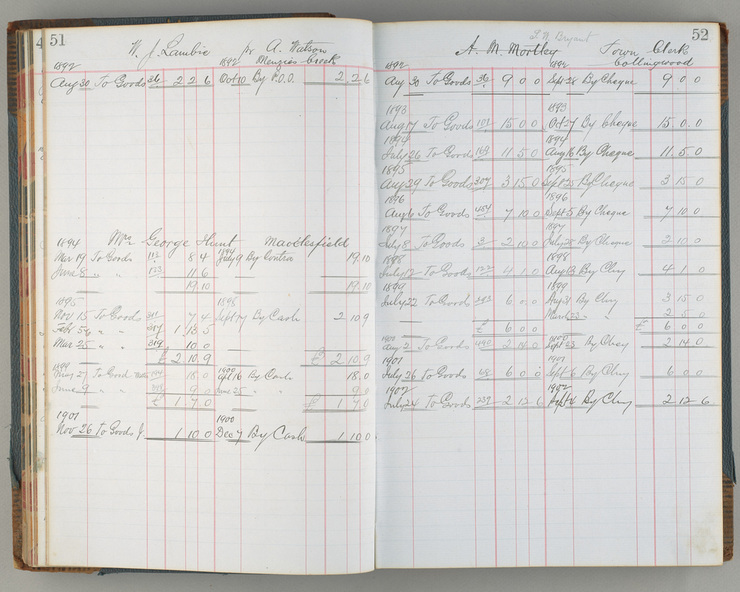 51
W. J. Lambie pr A. Watson
1892 1892 Menzies Creek
Aug 30 To Goods 36 2 2 6 Oct 10 By P.O.O. 2 2 6
1894 Mr George Hunt Macclesfield
Mar 19 To Goods 8 4 July 9 By Contra 19.10
June 8 " " 11.6
19.10 19.10
1895 1898
Nov 15 To Goods 7 4 Sept 17 By Cash 2 10 9
Feb " " 1 13.5
Mar 25 " " 319 10.0
£ 2 10.9 £ 2 10.9
1899 1900
To Goods 18.0 Sept 16 By Cash 18.0
June 9 " " 9 0 June 25 " " 9 0
£ 1 7.0 £ 1 7.0
1901 1900
Nov 26 To Goods 1 10 0 Dec 7 By Cash 1 10 0
52
J. W. Bryant
A. M. Mortley Town Clerk
1892 1892 Collingwood
Aug 30 To Goods 36 9 0 0 Sept 26 By Cheque 9 0 0
1893 1893
Aug 17 To Goods 15 0 0 Oct 27 By Cheque 15 0.0
1894 1894
July 26 To Goods 169 11 5 0 Aug 16 By Cheque 11.5.0
1895 1895
Aug 29 To Goods 307 3 15 0 Sept 25 By Cheque 3 15 0
1896 1896
Aug 6 To Goods 7 10 0 Sept 5 By Cheque 7 10 0
1897 1897
July 8 To Goods 2 10 0 July 28 By Cheque 2 10 0
1898 1898
July 12 To Goods 4 1 0 Aug 13 By Chq 4 1 0
1899 1899
July 22 To Goods 6 0 0 Aug 31 By Chq 3 15 0
" " 2 5 0
£ 6 0 0 £ 6 0 0
1900 1900
Aug 2 To Goods 2 14 0 Sept By Chq 2 14 0
1901 1901
July 26 To Goods 6 0 0 Sept 6 By Chq 6 0 0
1902 1902
July 24 To Goods 2 12 6 Sept By Chq 2 12 6